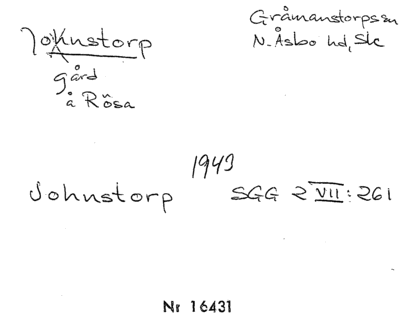 Johnstorp
gård
å Rösa
Gråmanstorps sn
N. Åsbo hd, Sk
1943
Johnstorp SGG 2 VII: 261
Nr 16431